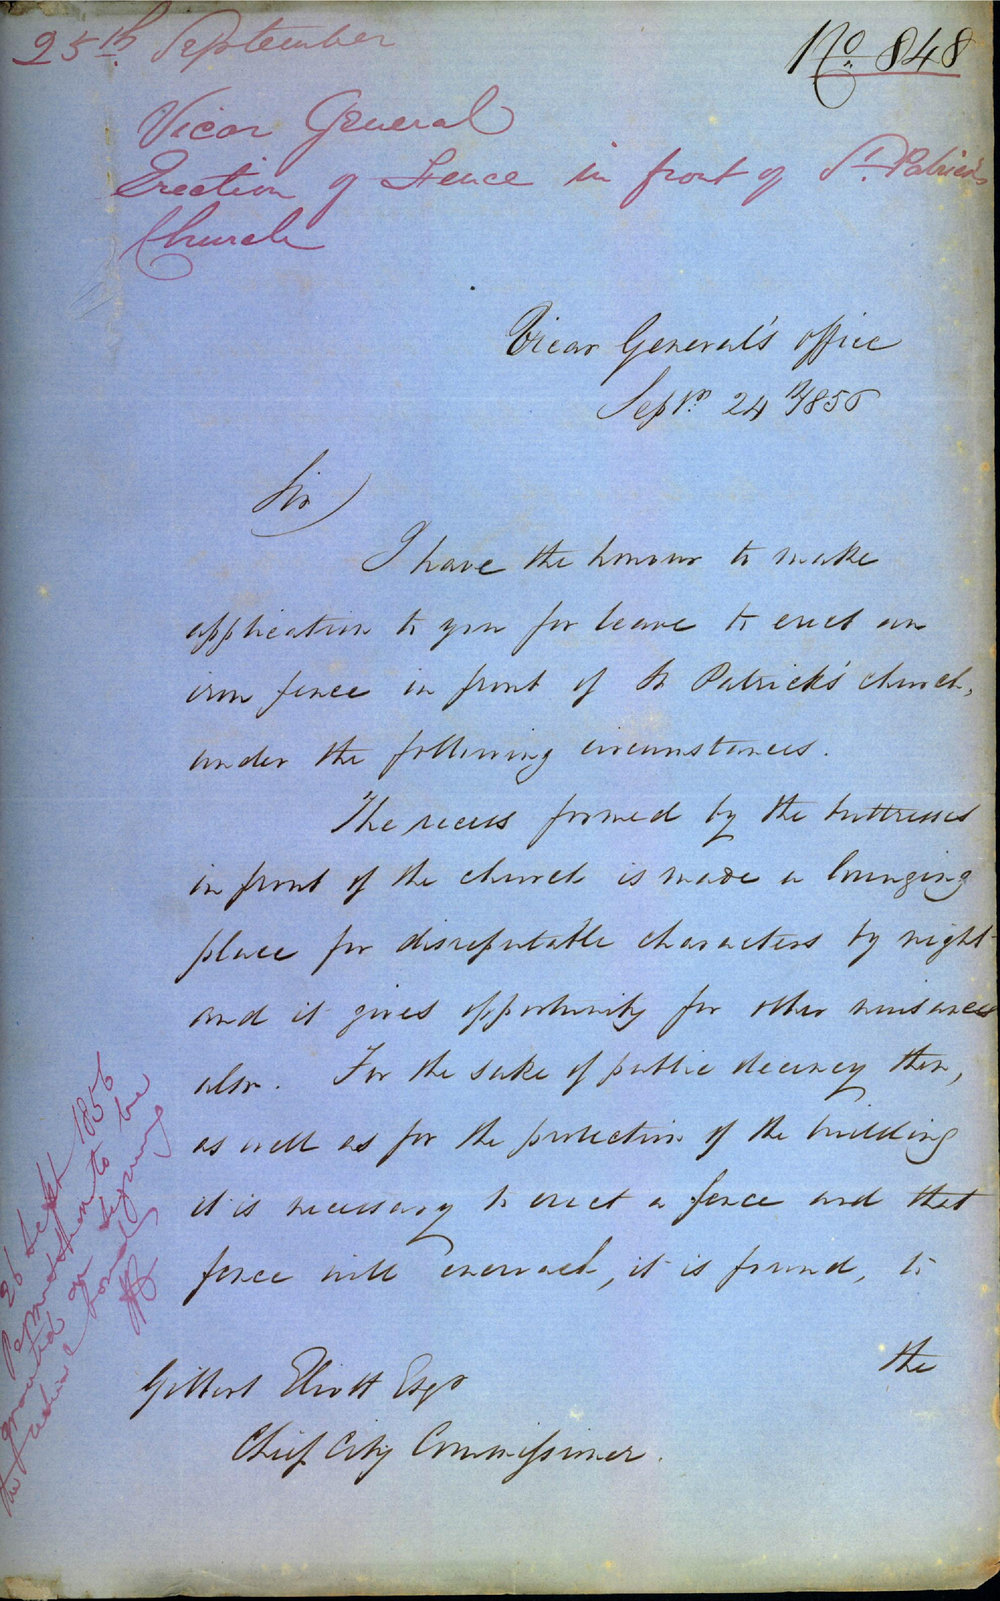 25th September
No 848
Vicar General
Erection of Fence in front of St. Patrick's
Church
Vicar General's office
Septr 24th/1856
Sir
I have the honour to make
application to you for leave to erect an
iron fence in front of St Patrick's church,
under the following circumstances.
The recess formed by the buttresses
in front of the church is made a lounging
place for disreputable characters by night
and it gives opportunity for other nuisances
also. For the sake of public decency then,
as well as for the protection of the building
it is necessary to erect a fence and that
fence will encroach, it is found, to
the
Gilbert Eliott Esqr
Chief City Commissioner.
26 Sept 1856
Permission to be
granted on signing
the usual form